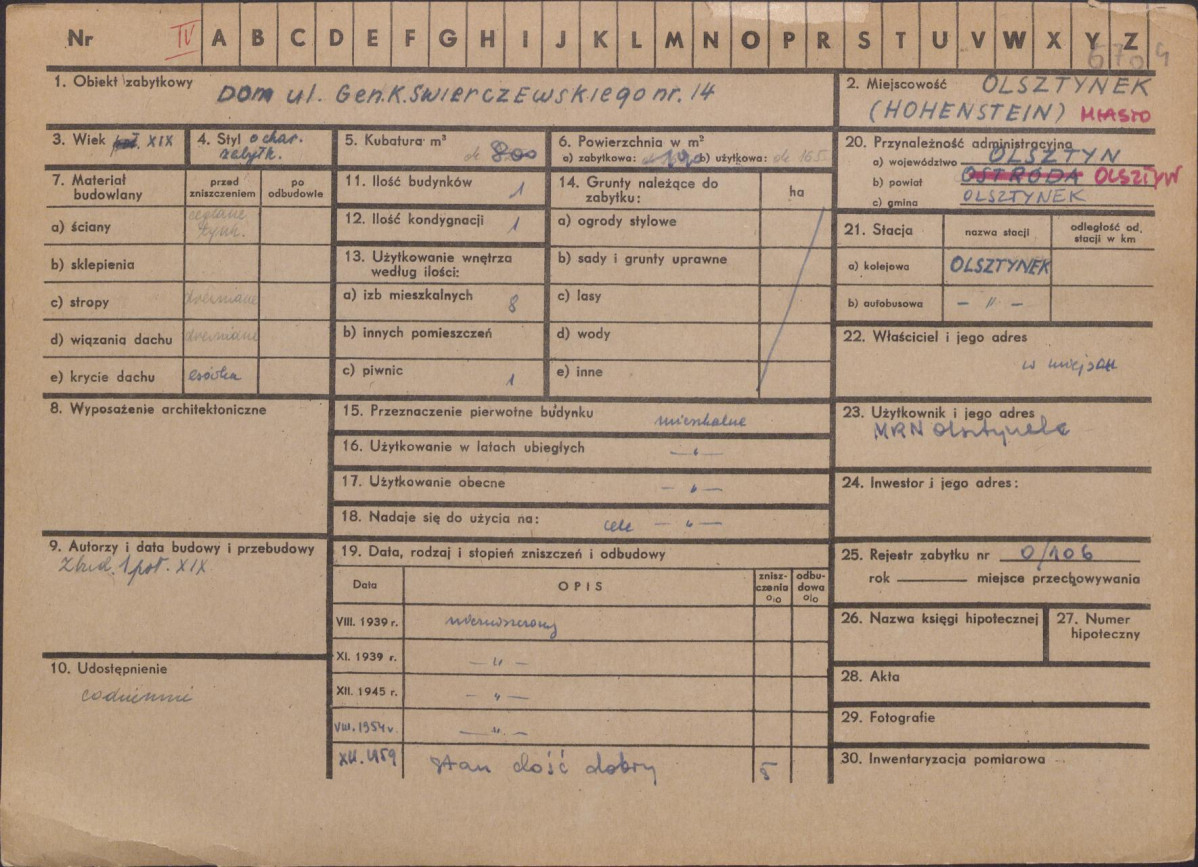 Nr IV A B C D E F G H I J K L M N O P R S T U V W X Y Z
1. Obiekt zabytkowy
DOM ul. Gen. K. SWIERCZEWSKIEGO nr. 14
2. Miejscowość OLSZTYNEK
(HOHENSTEIN) MIASTO
3. Wiek poł. XIX
4. Styl o char.
zabytk.
5. Kubatura m³
ok 800
6. Powierzchnia w m²
a) zabytkowa: b) użytkowa: ok 165
7. Materiał budowlany
przed zniszczeniem
po odbudowie
a) ściany ceglane
tynk.
b) sklepienia
c) stropy drewniane
d) wiązania dachu drewniane
e) krycie dachu esówka
8. Wyposażenie architektoniczne
9. Autorzy i data budowy i przebudowy
Zbud. 1 poł. XIX
10. Udostępnienie
codziennie
11. Ilość budynków 1
12. Ilość kondygnacji 1
13. Użytkowanie wnętrza
według ilości:
a) izb mieszkalnych 8
b) innych pomieszczeń
c) piwnic 1
14. Grunty należące do
zabytku:
ha
a) ogrody stylowe
b) sady i grunty uprawne
c) lasy
d) wody
e) inne
15. Przeznaczenie pierwotne budynku mieszkalne
16. Użytkowanie w latach ubiegłych — „ —
17. Użytkowanie obecne — „ —
18. Nadaje się do użycia na: cele — „ —
19. Data, rodzaj i stopień zniszczeń i odbudowy
Data
OPIS
zniszczenia %
odbudowa %
VIII. 1939 r. nienaruszony
XI. 1939 r. — „ —
XII. 1945 r. — „ —
VIII. 1954 r. — „ —
XII. 1959 stan dość dobry 5
20. Przynależność administracyjna
a) województwo OLSZTYN
b) powiat OSTRÓDA OLSZTYN
c) gmina OLSZTYNEK
21. Stacja
nazwa stacji
odległość od stacji w km
a) kolejowa OLSZTYNEK
b) autobusowa — „ —
22. Właściciel i jego adres
w miejscu
23. Użytkownik i jego adres
MRN Olsztynek
24. Inwestor i jego adres:
25. Rejestr zabytku nr 0/106
rok miejsce przechowywania
26. Nazwa księgi hipotecznej
27. Numer
hipoteczny
28. Akta
29. Fotografie
30. Inwentaryzacja pomiarowa